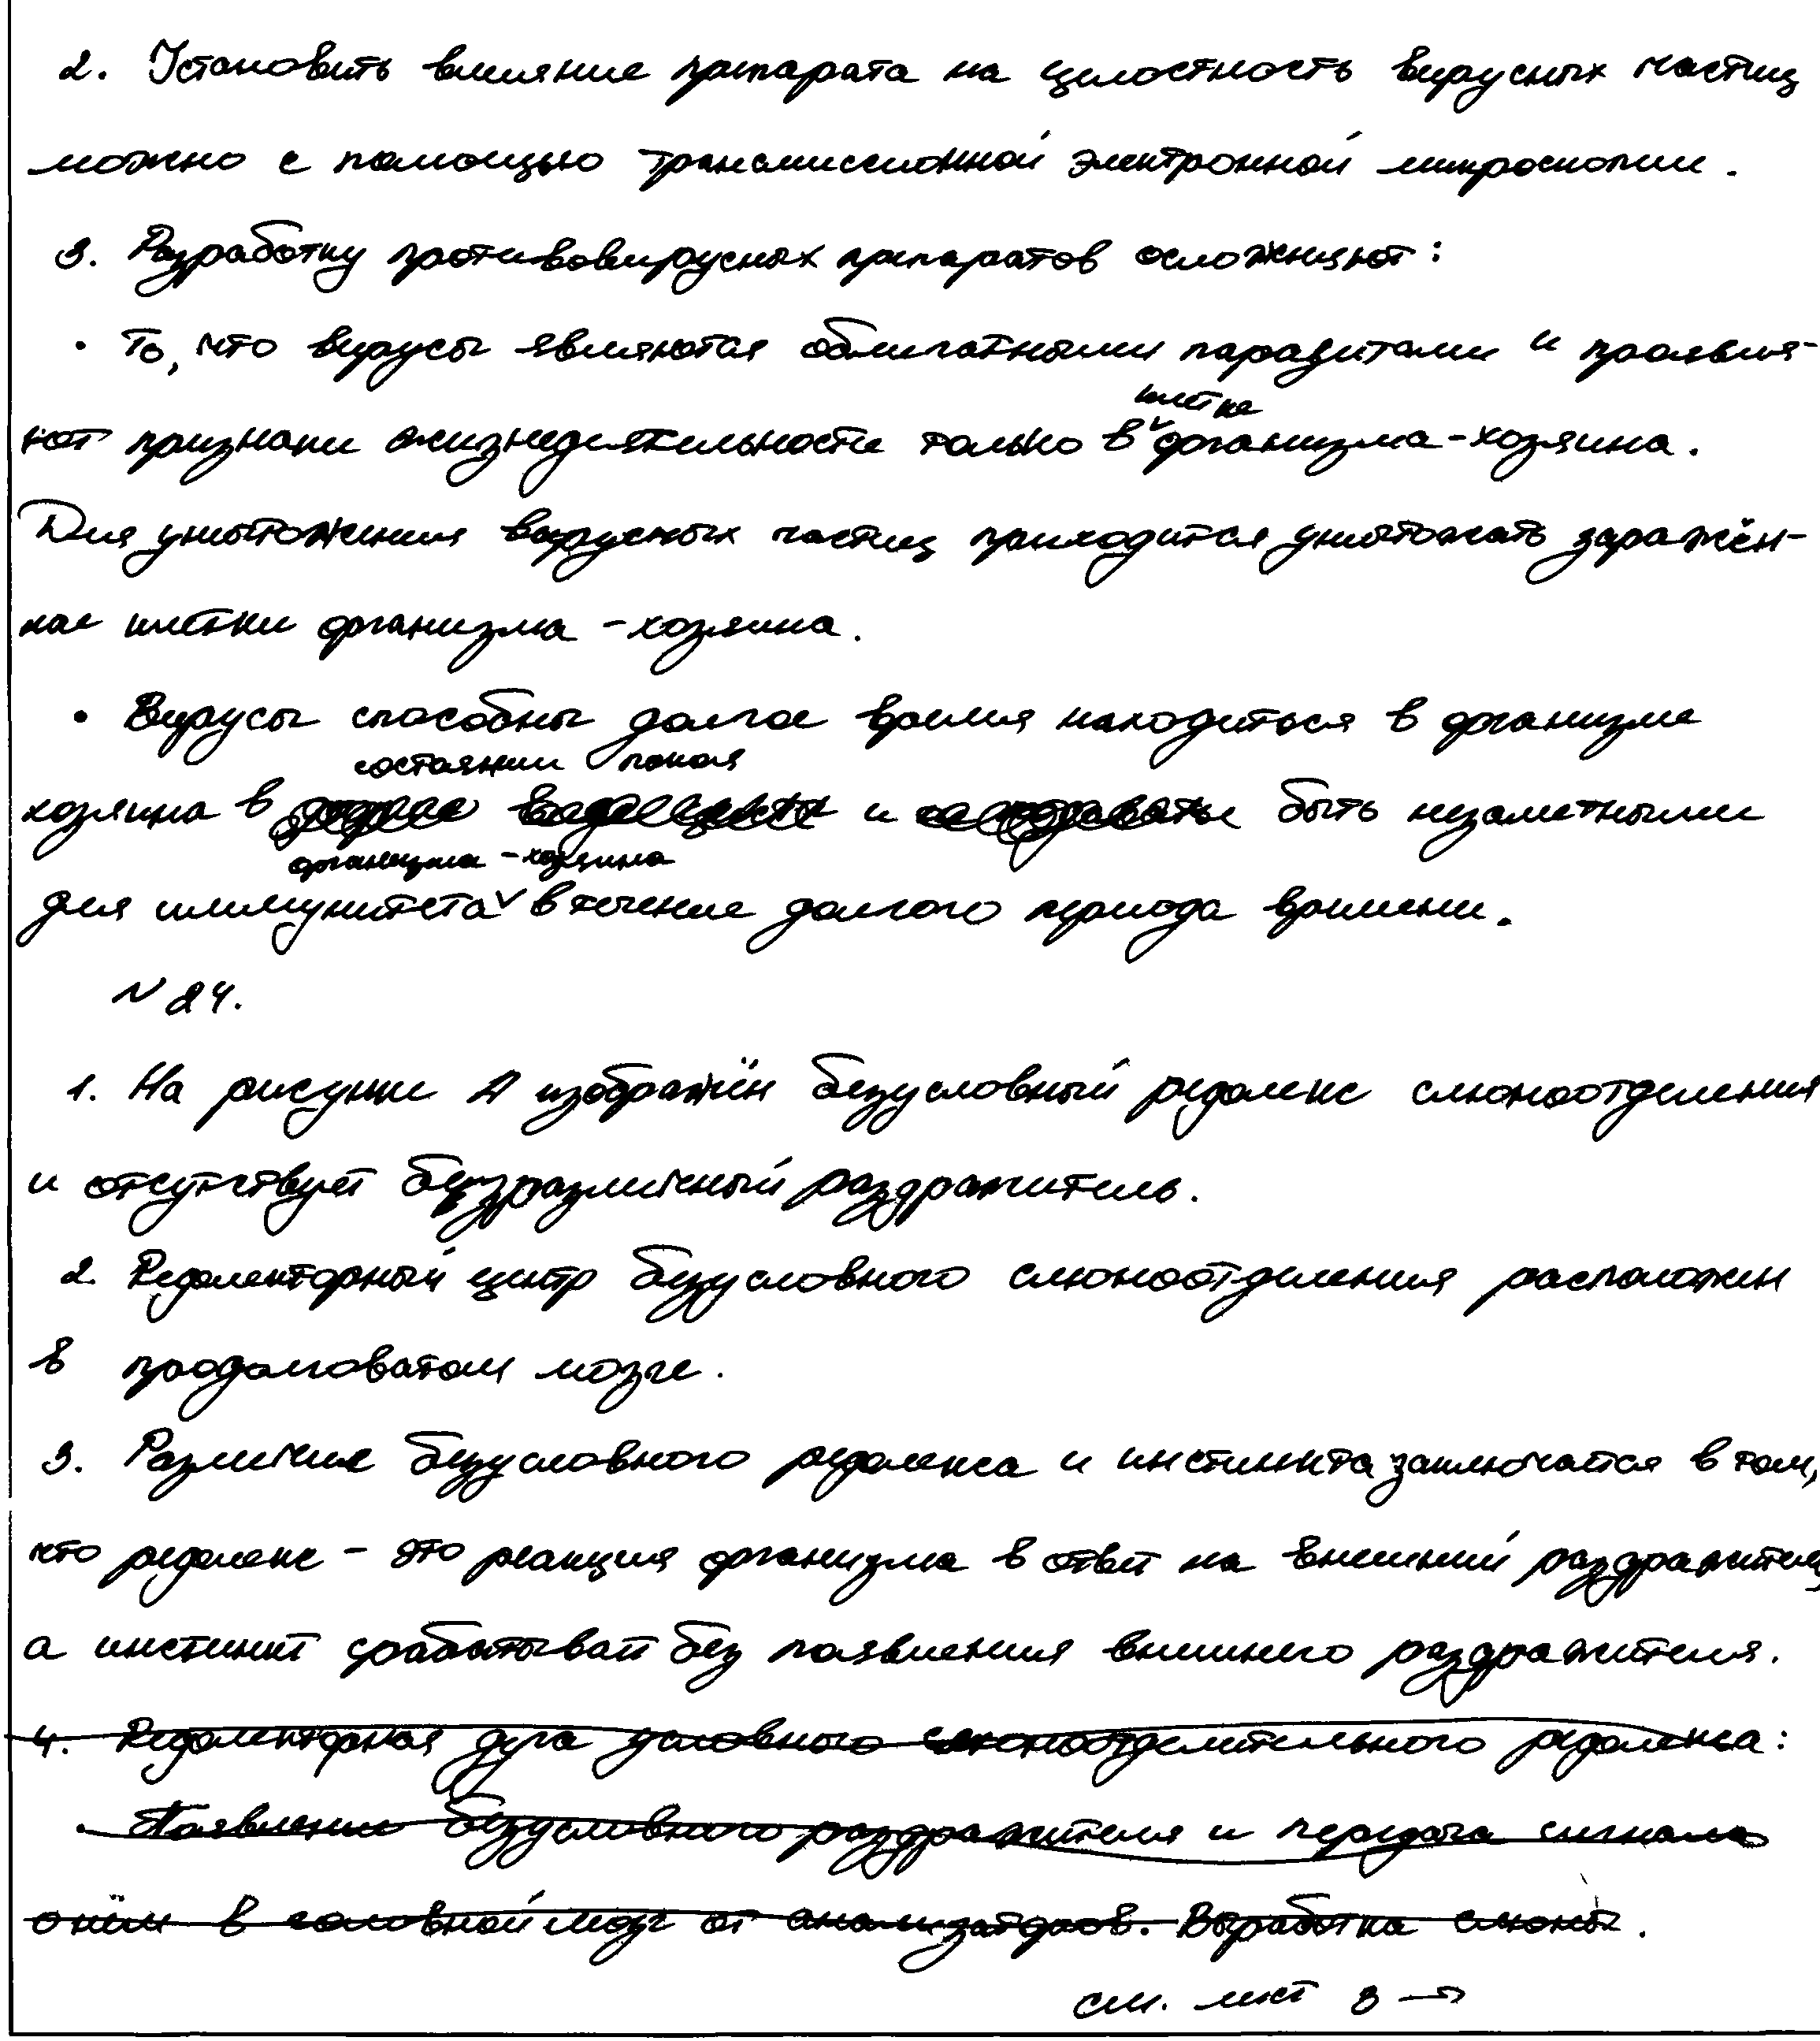 2. Установить влияние препарата на целостность вирусных частиц
можно с помощью трансмиссионной электронной микроскопии.
3. Разработку противовирусных препаратов осложняют:
· То, что вирусы являются облигатными паразитами и проявля-
клетке
ют признаки жизнедеятельности только в организма-хозяина.
Для уничтожения вирусных частиц приходится уничтожать заражён-
ные клетки организма-хозяина.
· Вирусы способны долгое время находиться в организме
состоянии покоя
хозяина в и быть незаметными
организма-хозяина
для иммунитета в течение долгого периода времени.
N 24.
1. На рисунке А изображён безусловный рефлекс слюноотделения
и отсутствует безразличный раздражитель.
2. Рефлекторный центр безусловного слюноотделения расположен
в продолговатом мозге.
3. Различие безусловного рефлекса и инстинкта заключается в том,
что рефлекс - это реакция организма в ответ на внешний раздражитель,
а инстинкт срабатывает без появления внешнего раздражителя.
4. Рефлекторная дуга условного слюноотделительного рефлекса:
· Появление безусловного раздражителя и передача сигнала
о нём в головной мозг от анализаторов. Выработка слюны.
см. лист 3 →